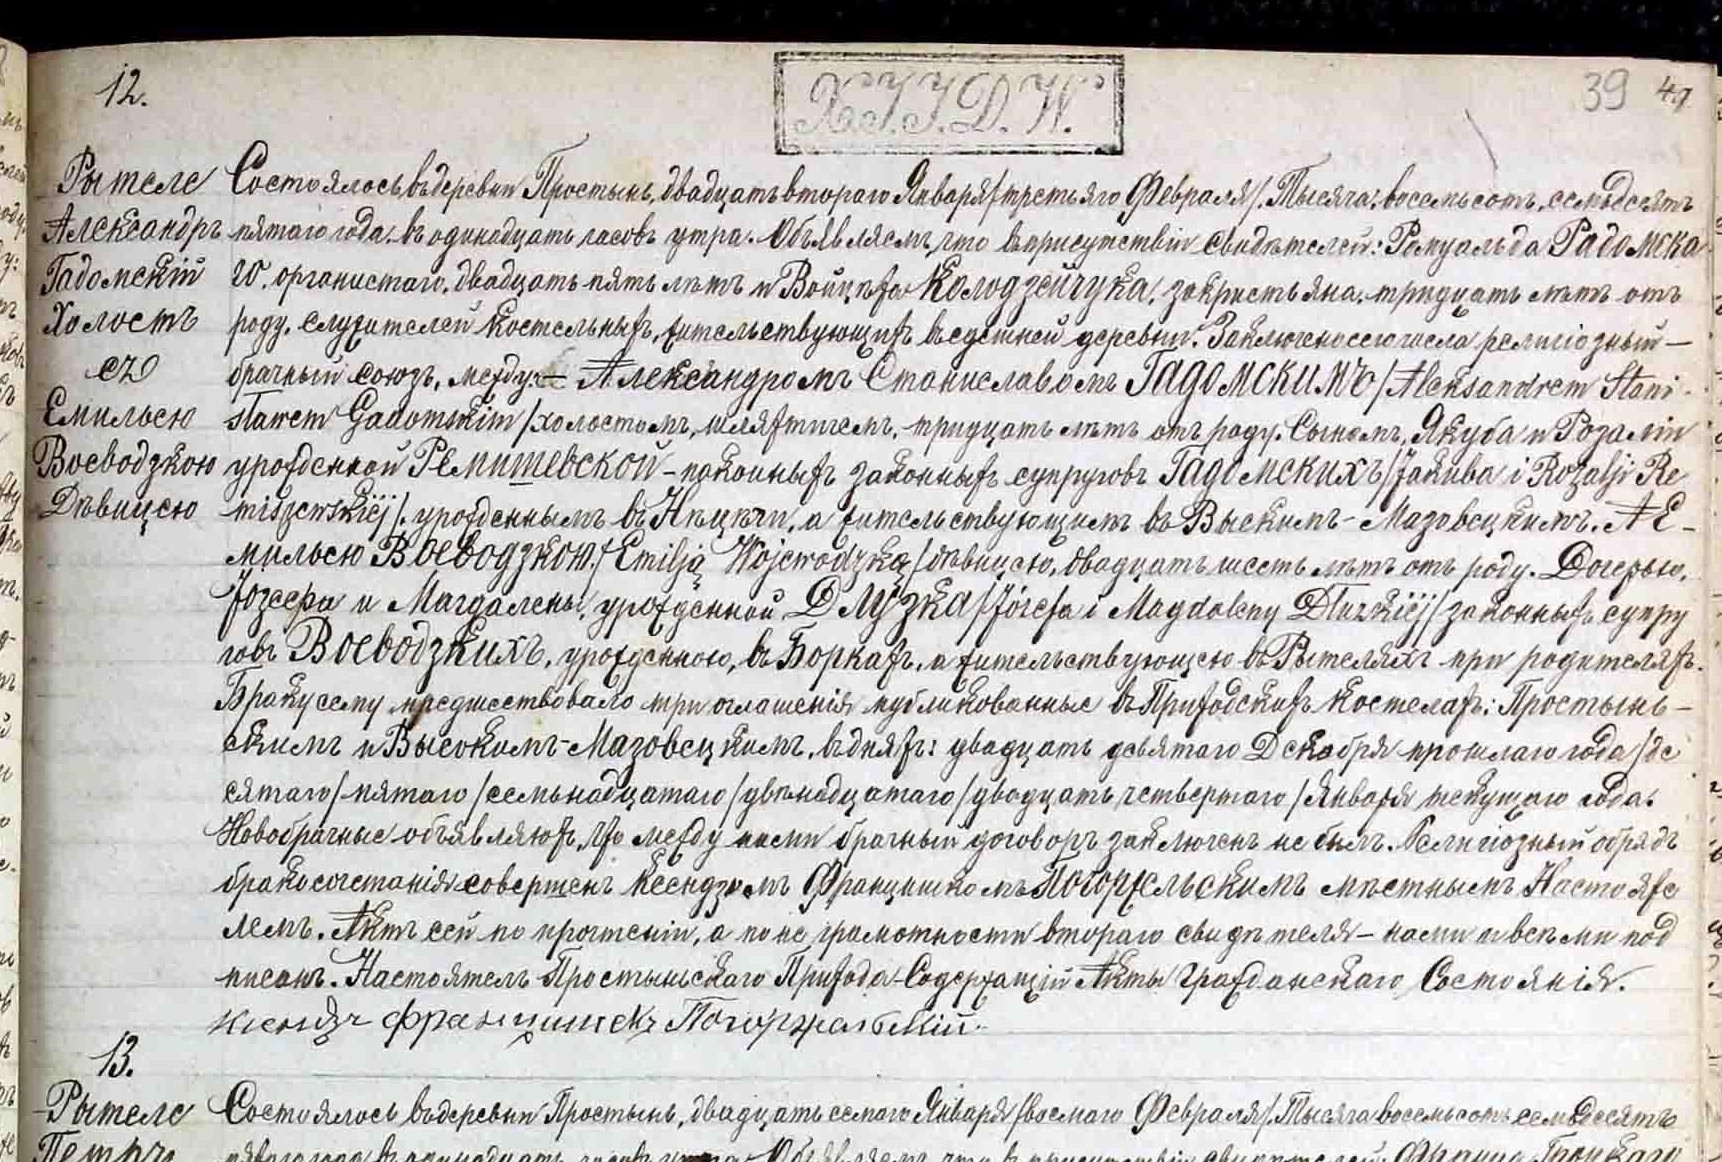 12.
X.I.I.D.W.
39 47
Рытеле
Александръ
Гадомскій
Холостъ
съ
Емильею
Воеводзкою
Дѣвицею
Состоялось въ деревни Простынь, двадцать втораго Января /третьяго Февраля/. Тысяча, восемьсотъ, семьдесятъ
пятаго года, въ одинадцать часовъ утра. Объявляемъ, что въ присутствіи свидѣтелей: Ромуальда Радомска
го, органистаго, двадцать пять лѣтъ и Войцѣха Колодзейчука, закристьяна, тридцать лѣтъ отъ
роду, служителей костельныхъ, жительствующихъ въ здешней деревни. Заключено сего числа религіозный —
брачный союзъ, между: — Александромъ Станиславомъ Гадомскимъ /Aleksandrem Stani-
sławem Gadomskim/ холостомъ, шляхтичемъ, тридцать лѣтъ отъ роду. Сыномъ, Якуба и Розаліи
урожденной Ремишевской – покойныхъ законныхъ супруговъ Гадомскихъ /Jakuba i Rozalji Re
miszewskiej/, урожденнымъ въ Нѣцѣчи, а жительствующимъ въ Выскимъ-Мазовецкимъ. А Е-
мильею Воеводзкою /Emilją Wojewodzką/ дѣвицею, двадцать шесть лѣтъ отъ роду. Дочерью,
Іозефа и Магдалены, урожденной Длузка /Józefa i Magdaleny Dłuzkiej/ законныхъ супру
говъ Воеводзкихъ, урожденною, въ Боркахъ, а жительствующею въ Рытеляхъ при родителяхъ.
Браку сему предшествовало три оглашенія публикованные въ Приходскихъ Костелахъ: Простынь-
скимъ и Высокимъ-Мазовецкимъ, въ дняхъ: двадцать девятаго Декабря прошлаго года /де
сятаго/ пятаго /семьнадцатаго/ двѣнадцатаго /двадцать четвертаго/ Января текущаго года.
Новобрачные объявляютъ, что между ними брачный договоръ заключенъ не былъ. Религіозный обрядъ
бракосочетанія совершенъ Ксендзомъ Францишкомъ Погоржельскимъ мѣстнымъ Настояте
лемъ. Актъ сей по прочтеніи, а по не грамотности втораго свидѣтеля – нами и всѣми под
писанъ. Настоятель Простыньскаго Прихода Содержащій Акты Гражданскаго Состоянія.
Ксендзъ Францишекъ Погоржельскій.
13.
Рытеле
Петръ
Состоялось въ деревни Простынь, двадцать семаго Января /восмаго Февраля/. Тысяча восемьсотъ семьдесятъ
пятаго года въ одинадцать часовъ утра. Объявляемъ, что въ присутствіи свидѣтелей: